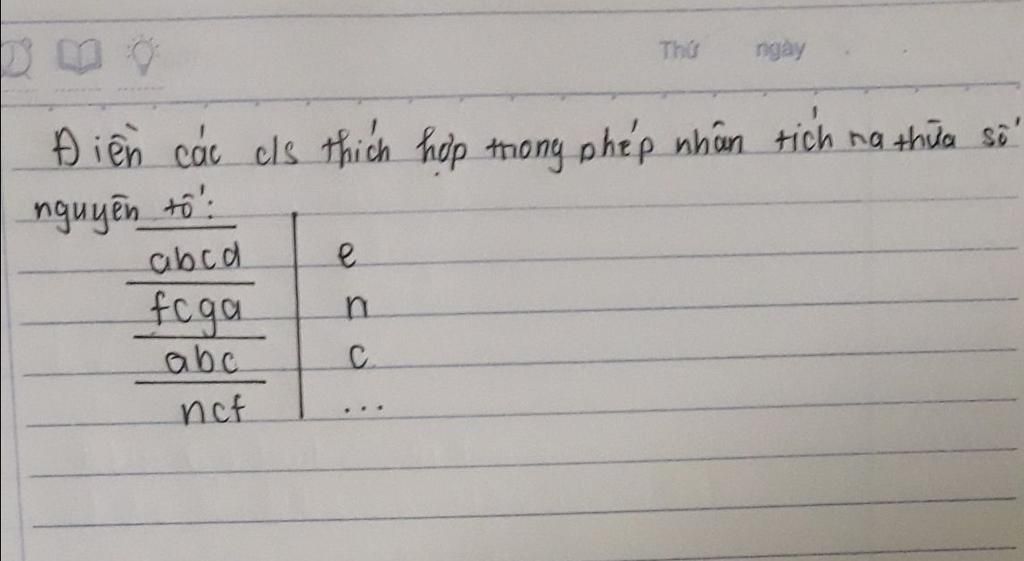 Thứ ngày
Điền các cls thích hợp trong phép nhân tích ra thừa số
nguyên tố:
abcd e
fcga n
abc c
ncf ...